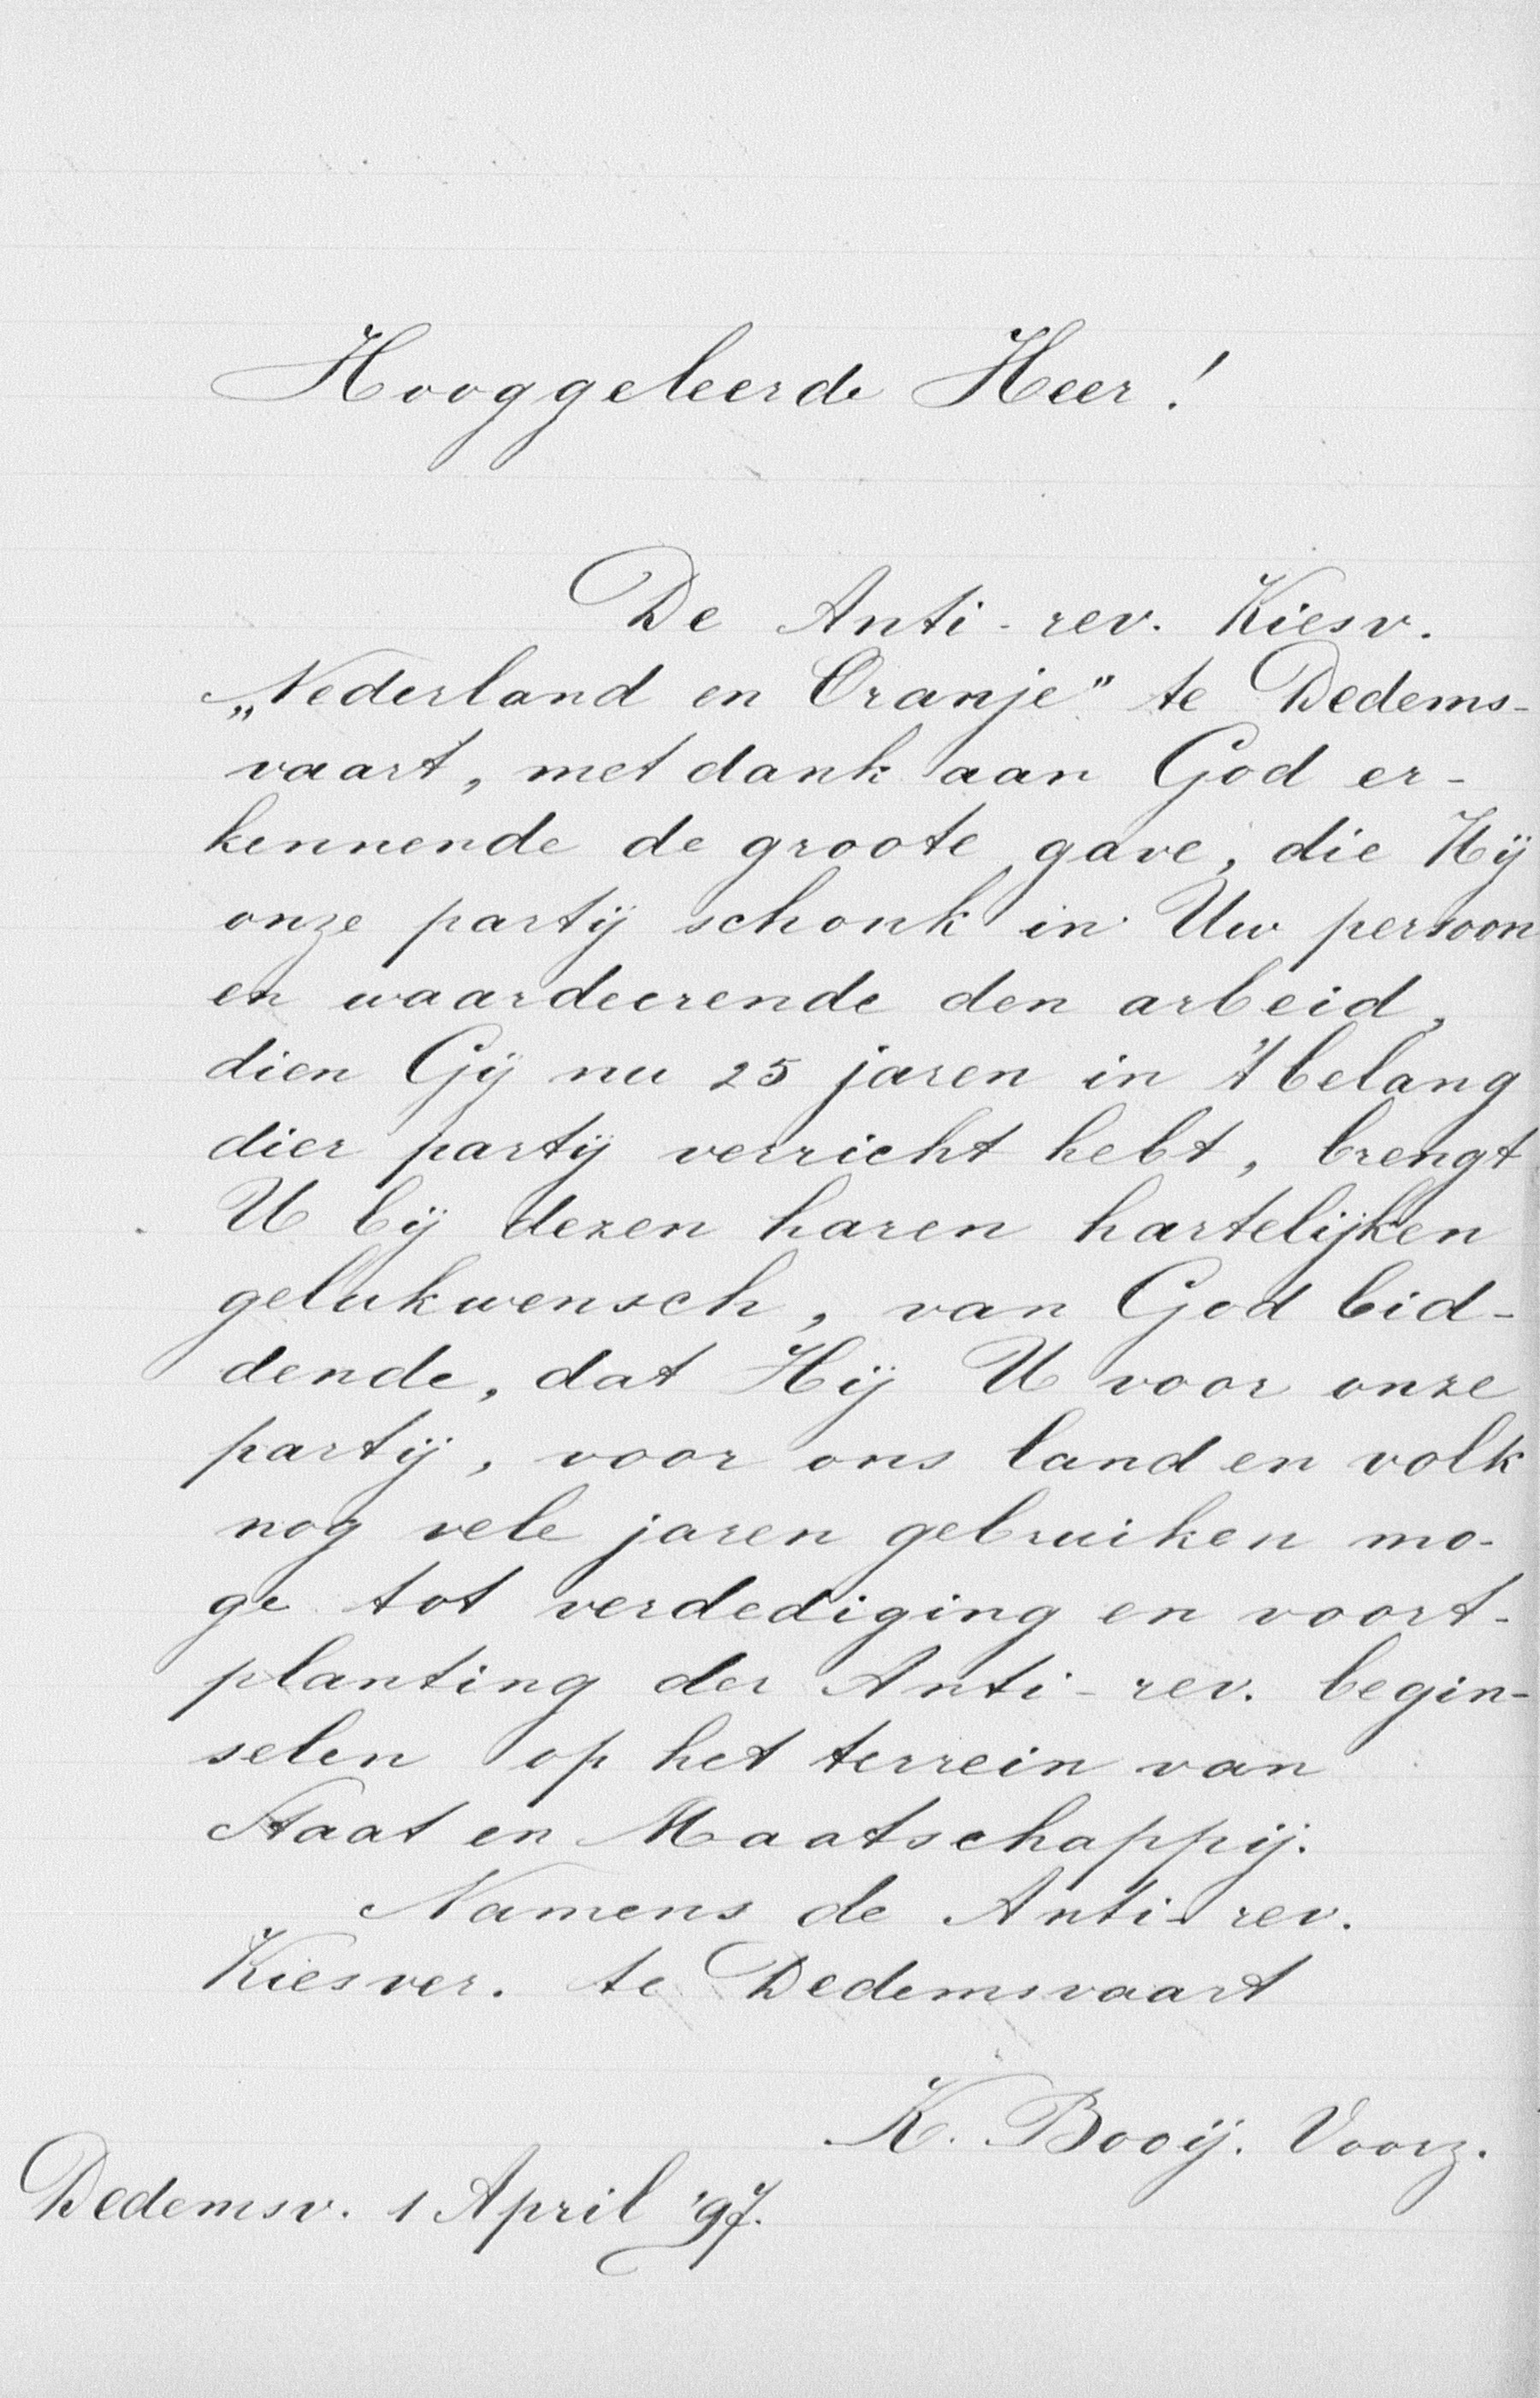 Hooggeleerde Heer!
De Anti-rev. Kiesv.
„Nederland en Oranje” te Dedems-
vaart, met dank aan God er-
kennende de groote gave, die Hij
onze partij schonk in Uw persoon
en waardeerende den arbeid,
dien Gij nu 25 jaren in 't belang
dier partij verricht hebt, brengt
U bij dezen haren hartelijken
gelukwensch, van God bid-
dende, dat Hij U voor onze
partij, voor ons land en volk
nog vele jaren gebruiken mo-
ge tot verdediging en voort-
planting der Anti-rev. begin-
selen op het terrein van
Staat en Maatschappij.
Namens de Anti-rev.
Kiesver. te Dedemsvaart
K. Booij. Voorz.
Dedemsv. 1 April '97.